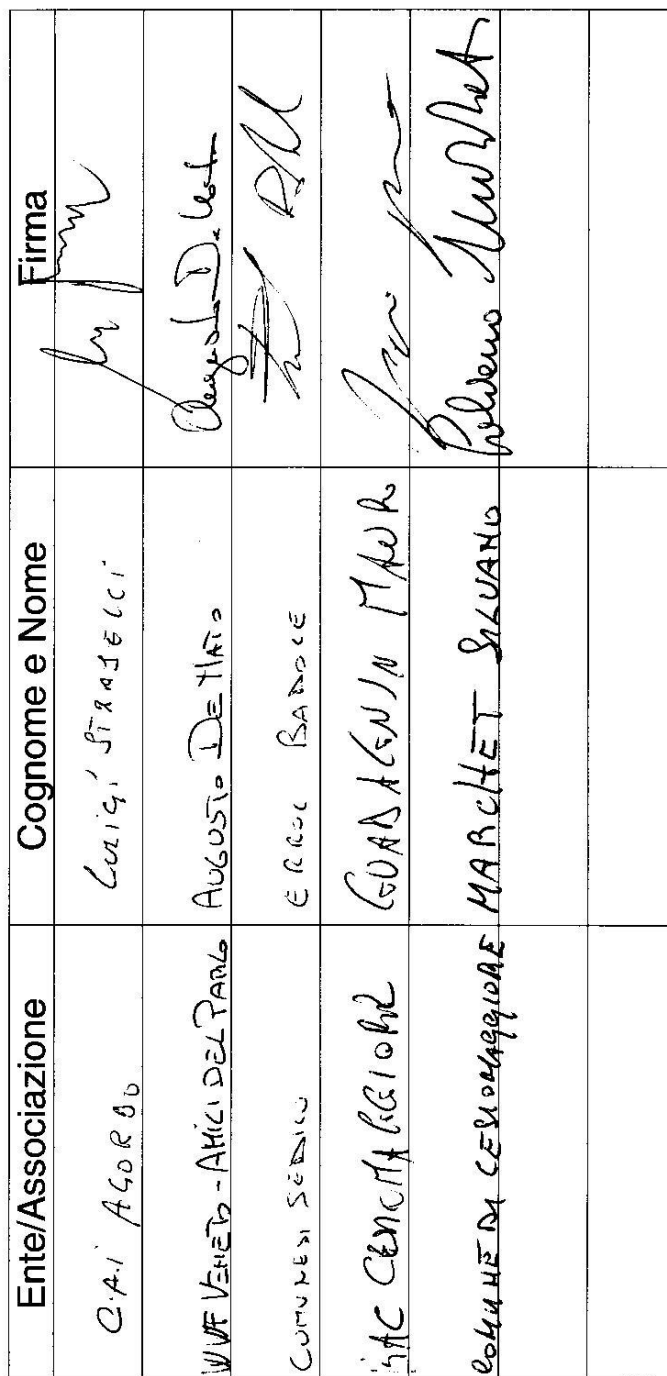 Ente/Associazione Cognome e Nome Firma
C.A.I AGORDO LUIGI
WWF VENETO - AMICI DEL PARCO AUGUSTO DE NATO
COMUNE DI SEDICO ERROL
CESIOMAGGIORE GUADAGNIN MAURO
COMUNE DI CESIOMAGGIORE MARCHET SILVANO Silvano Marchet